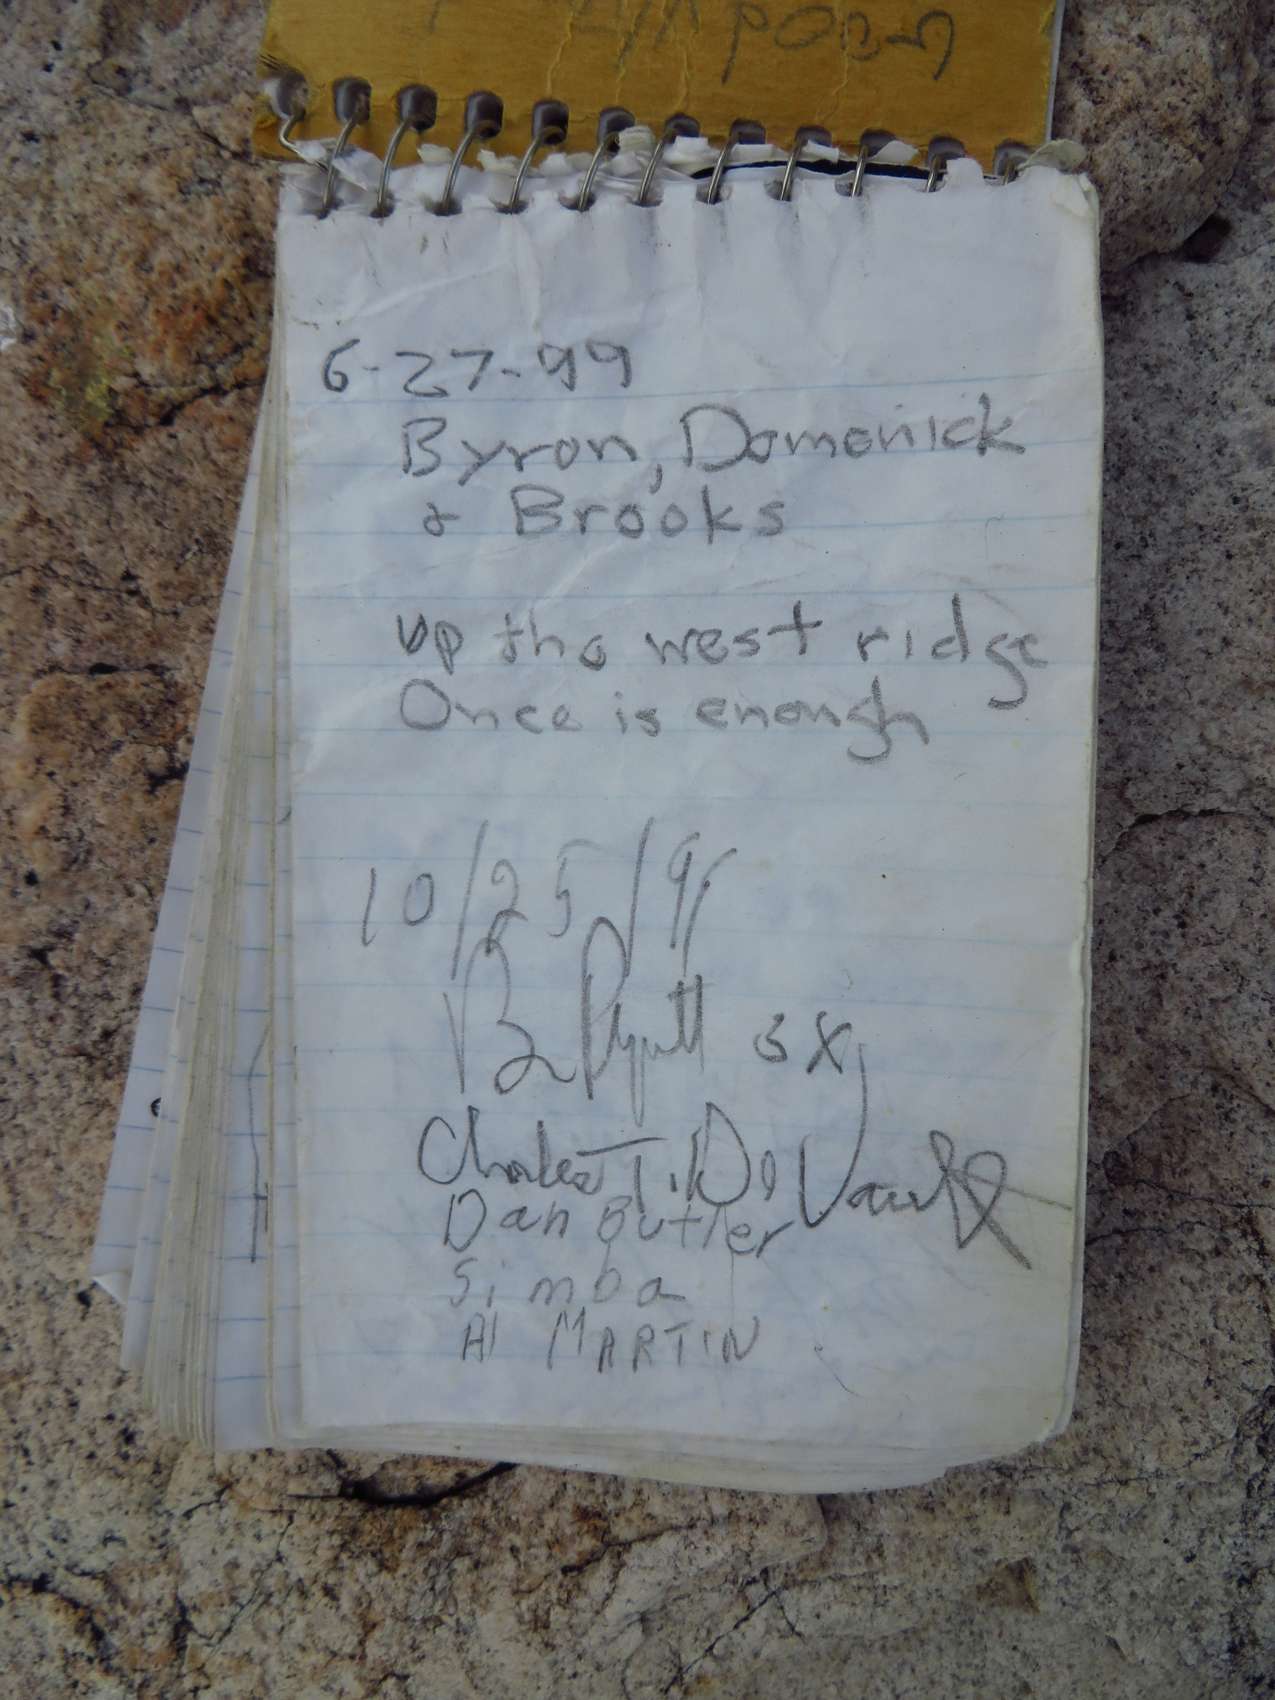 6-27-99
Byron, Domenick
& Brooks
up the west ridge
Once is enough
10/25/99
B Pyatt 3X
Charles T. De Vault
Dan Butler
Simba
Al MARTIN